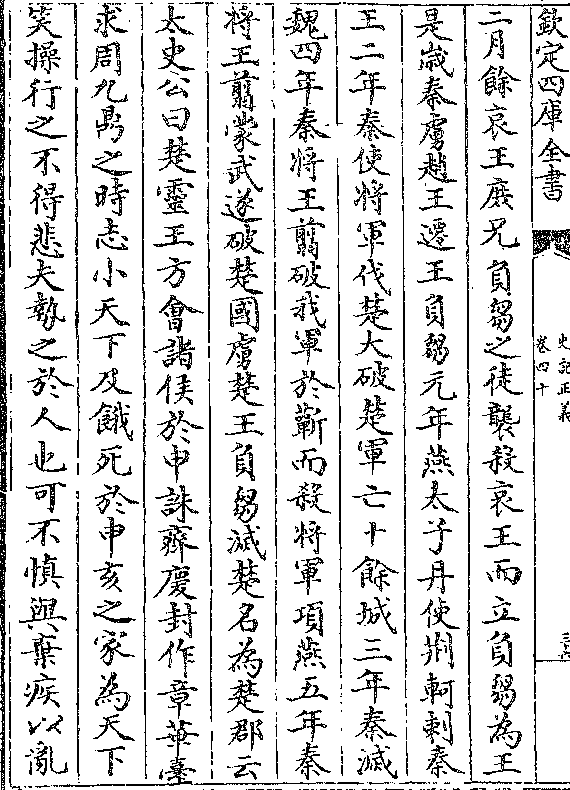 欽定四庫全書
史記正義
卷四十
三六
二月餘哀王庻兄負芻之徒襲殺哀王而立負芻為王
是歳秦虜趙王遷王負芻元年燕太子丹使荆軻刺秦
王二年秦使將軍伐楚大破楚軍亡十餘城三年秦滅
魏四年秦將王翦破我軍於蘄而殺將軍項燕五年秦
將王翦蒙武遂破楚國虜楚王負芻滅楚名為楚郡云
太史公曰楚靈王方會諸侯於申誅齊慶封作章華臺
求周九鼎之時志小天下及餓死於申亥之家為天下
笑操行之不得悲夫勢之於人也可不慎與棄疾以亂